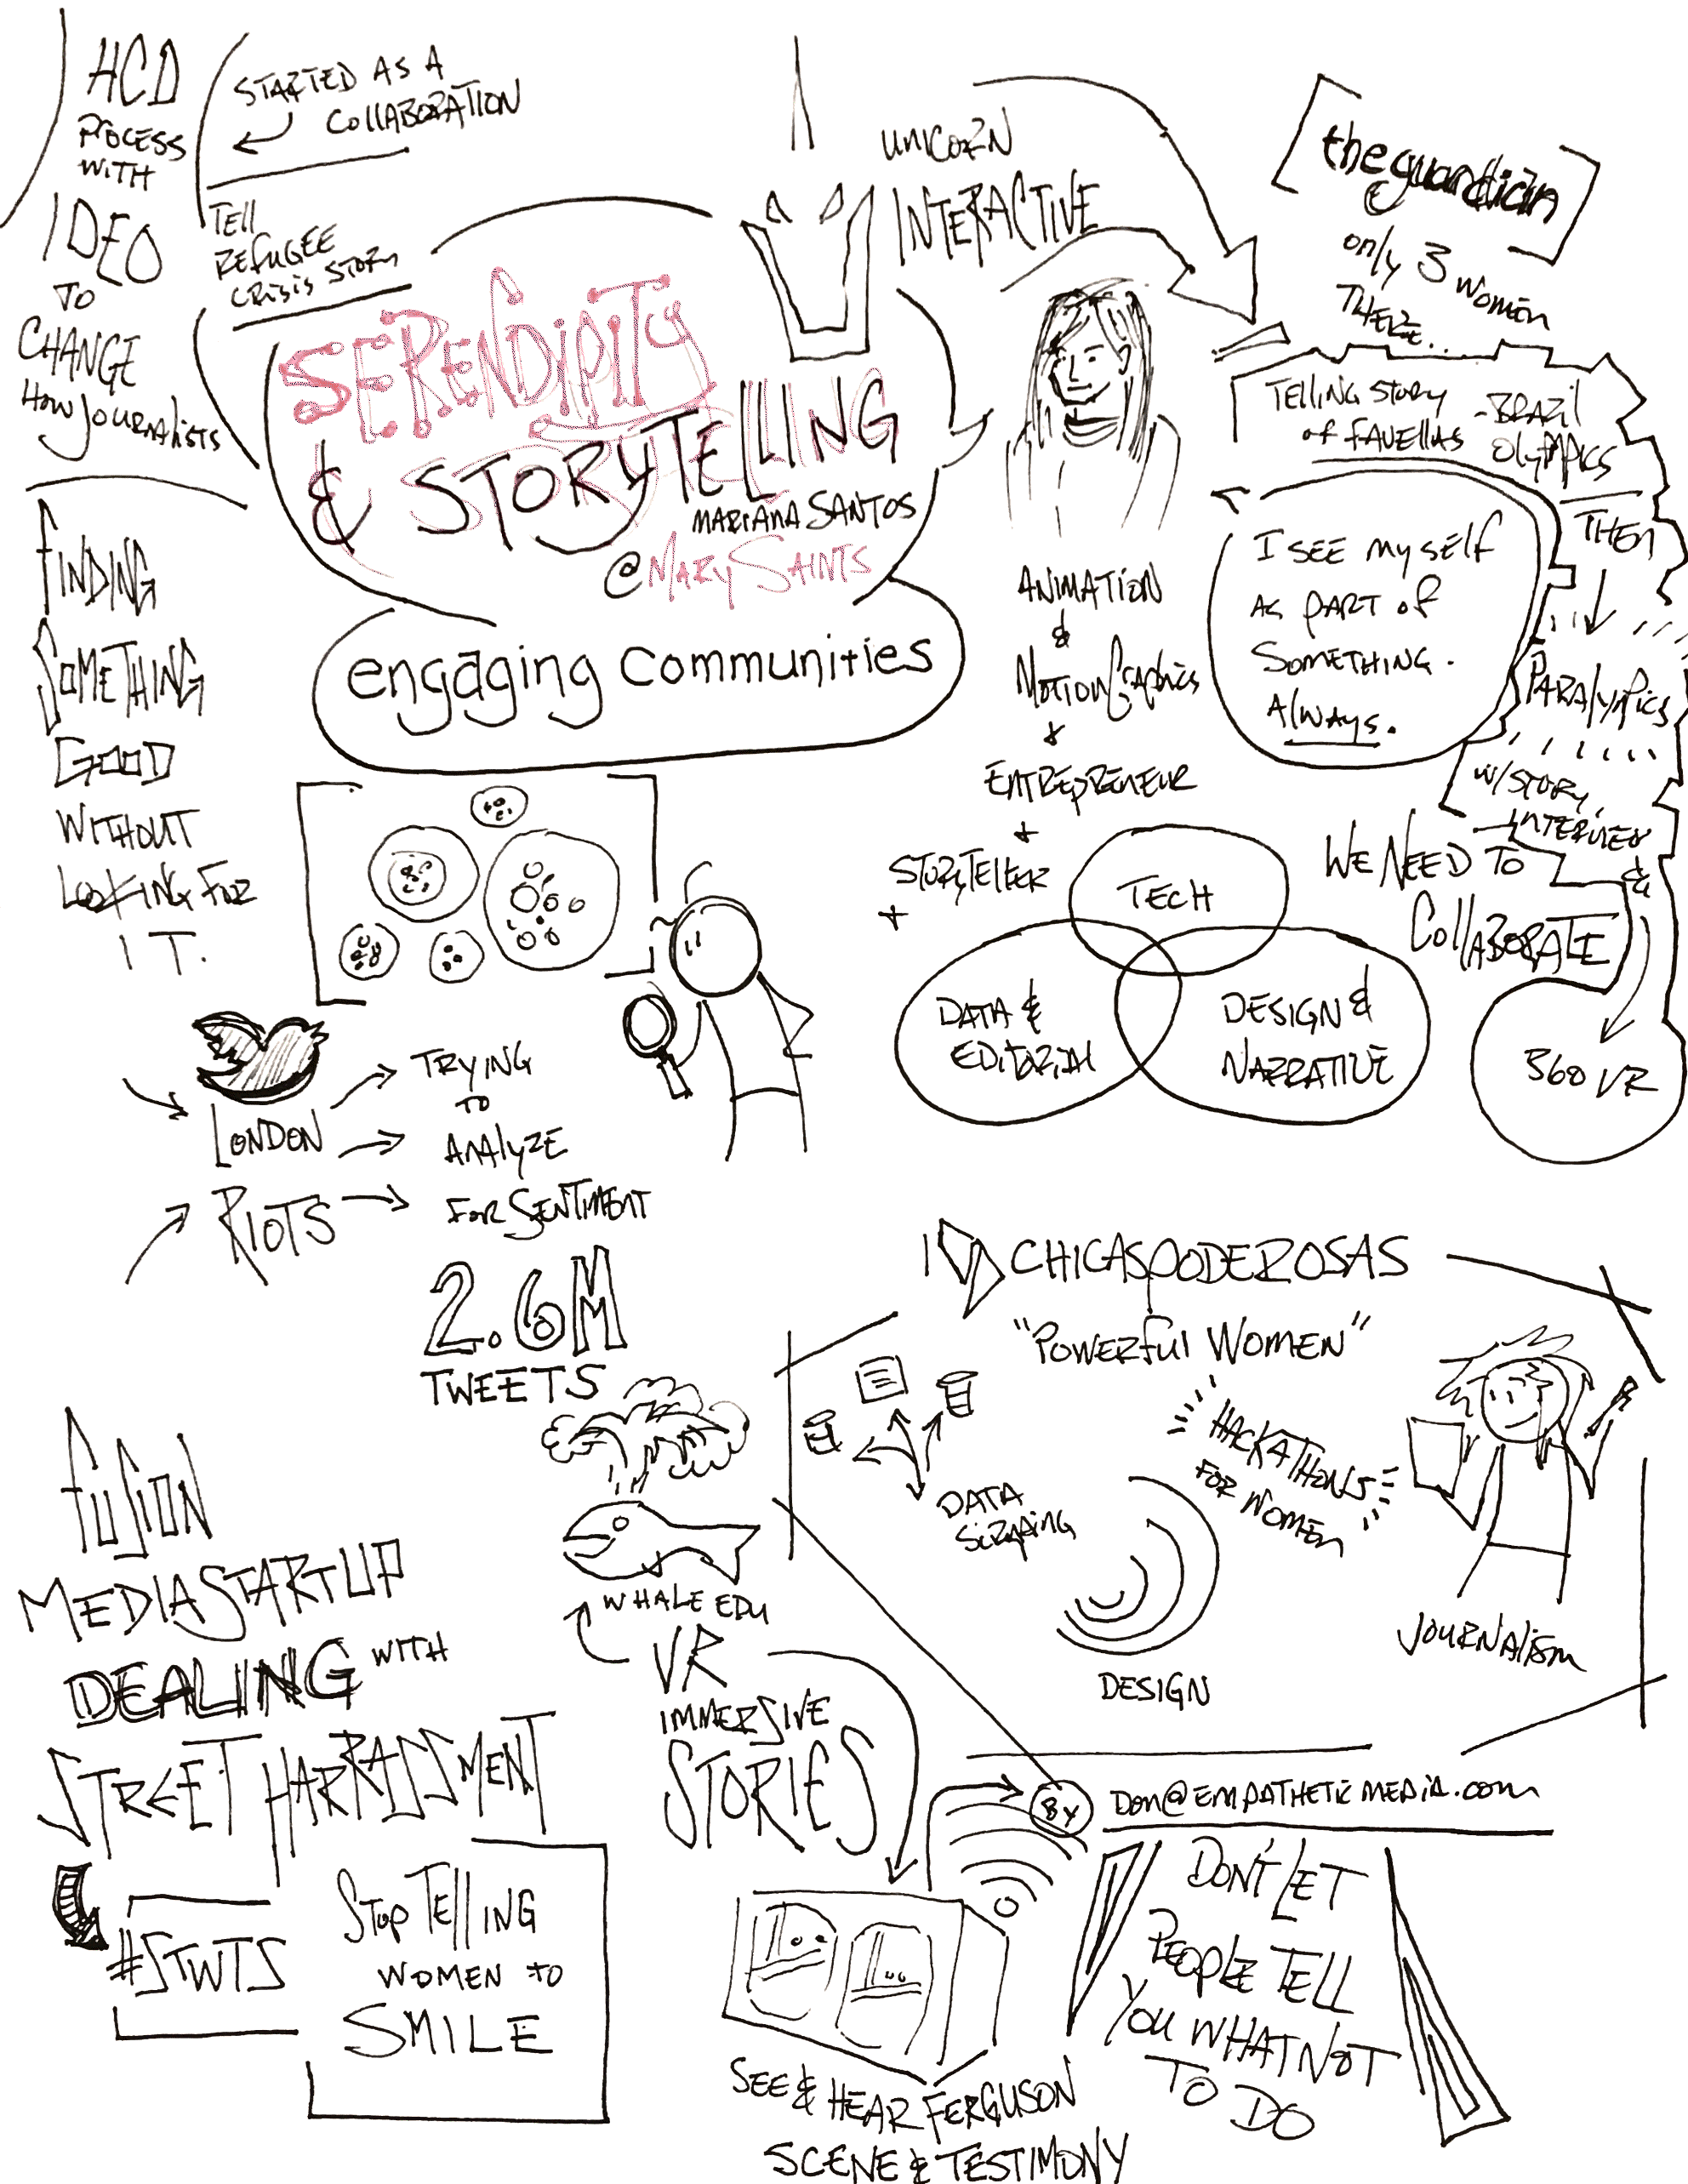 HCD
PROCESS
WITH
IDEO
TO
CHANGE
HOW JOURNALISTS
STARTED AS A
COLLABORATION
TELL
REFUGEE
CRISIS STORY
SERENDIPITY
& STORYTELLING
MARIANA SANTOS
@MARYSAINTS
engaging communities
UNICORN
INTERACTIVE
theguardian
only 3 women
THERE...
TELLING STORY
of FAVELLAS
-BRAZIL
OLYMPICS
THEN
PARALYMPICS
W/STORY,
INTERVIEW
&
360 VR
I SEE MYSELF
AS PART OF
SOMETHING.
ALWAYS.
ANIMATION
&
MOTION GRAPHICS
+
ENTREPRENEUR
+
STORYTELLER
+
TECH
DATA &
EDITORIAL
DESIGN &
NARRATIVE
WE NEED TO
COLLABORATE
FINDING
SOMETHING
GOOD
WITHOUT
LOOKING FOR
IT.
LONDON
RIOTS
TRYING
TO
ANALYZE
FOR SENTIMENT
2.6M
TWEETS
CHICASPODEROSAS
"POWERFUL WOMEN"
HACKATHONS
FOR WOMEN
DATA
DESIGN
JOURNALISM
FUSION
MEDIA STARTUP
DEALING WITH
STREET HARRASSMENT
#STWTS
STOP TELLING
WOMEN TO
SMILE
WHALE EDU
VR
IMMERSIVE
STORIES
SEE & HEAR FERGUSON
SCENE & TESTIMONY
BY
DON@EMPATHETICMEDIA.COM
DON'T LET
PEOPLE TELL
YOU WHAT NOT
TO DO